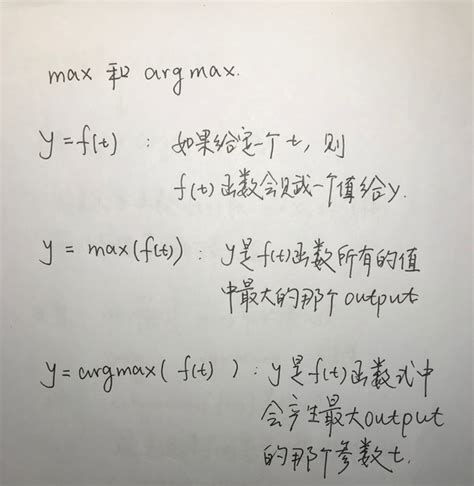 max 和 argmax.
y = f(t) : 如果给定一个 t, 则
f(t) 函数会赋一个值给 y.
y = max(f(t)) : y是 f(t)函数所有的值
中最大的那个 output
y = argmax( f(t) ) : y 是 f(t) 函数式中
会产生最大output
的那个参数 t.